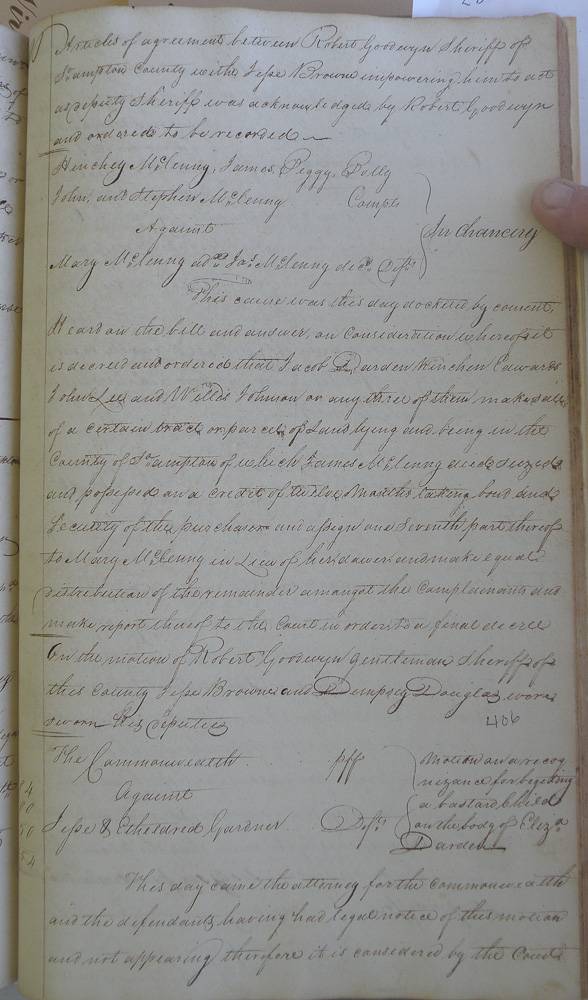 Articles of agreement between Robert Goodwyn Sheriff of
So.ampton County with Jesse Browne impowering him to act
as deputy Sheriff was acknowledged by Robert Goodwyn
and ordered to be recorded
Hinchey McClenny, James, Peggy, Polly
John, and Stephen McClenny Compts
Against
In Chancery
Mary McClenny adx Jas. McClenny decd. Defts
This cause was this day docketed by consent,
Heard on the bill and answer, on Consideration whereof it
is decreed and ordered that Jacob Darden Kinchen Edwards
John Lee and Willis Johnson or any three of them make sale
of a certain tract or parcel of Land lying and being in the
County of So.ampton of which James McClenny decd. seized
and possessed on a credit of twelve Months taking bond and
Security of the purchaser and assign one Seventh part thereof
to Mary McClenny in Lieu of her dower and make equal
distribution of the remainder amongst the Complainants and
make report thereof to the Court in order to a final decree
On the motion of Robert Goodwyn Gentleman Sheriff of
this County Jesse Browne and Dempsey Douglas were
sworn his Deputies
406
The Commonwealth plff
Against
Jesse & Etheldred Gardner Defts
Motion on a recog
nizance for begeting
a bastard Child
on the body of Eliza
Darden
This day came the attorney for the commonwealth
and the defendants having had legal notice of this motion
and not appearing therefore it is considered by the Court